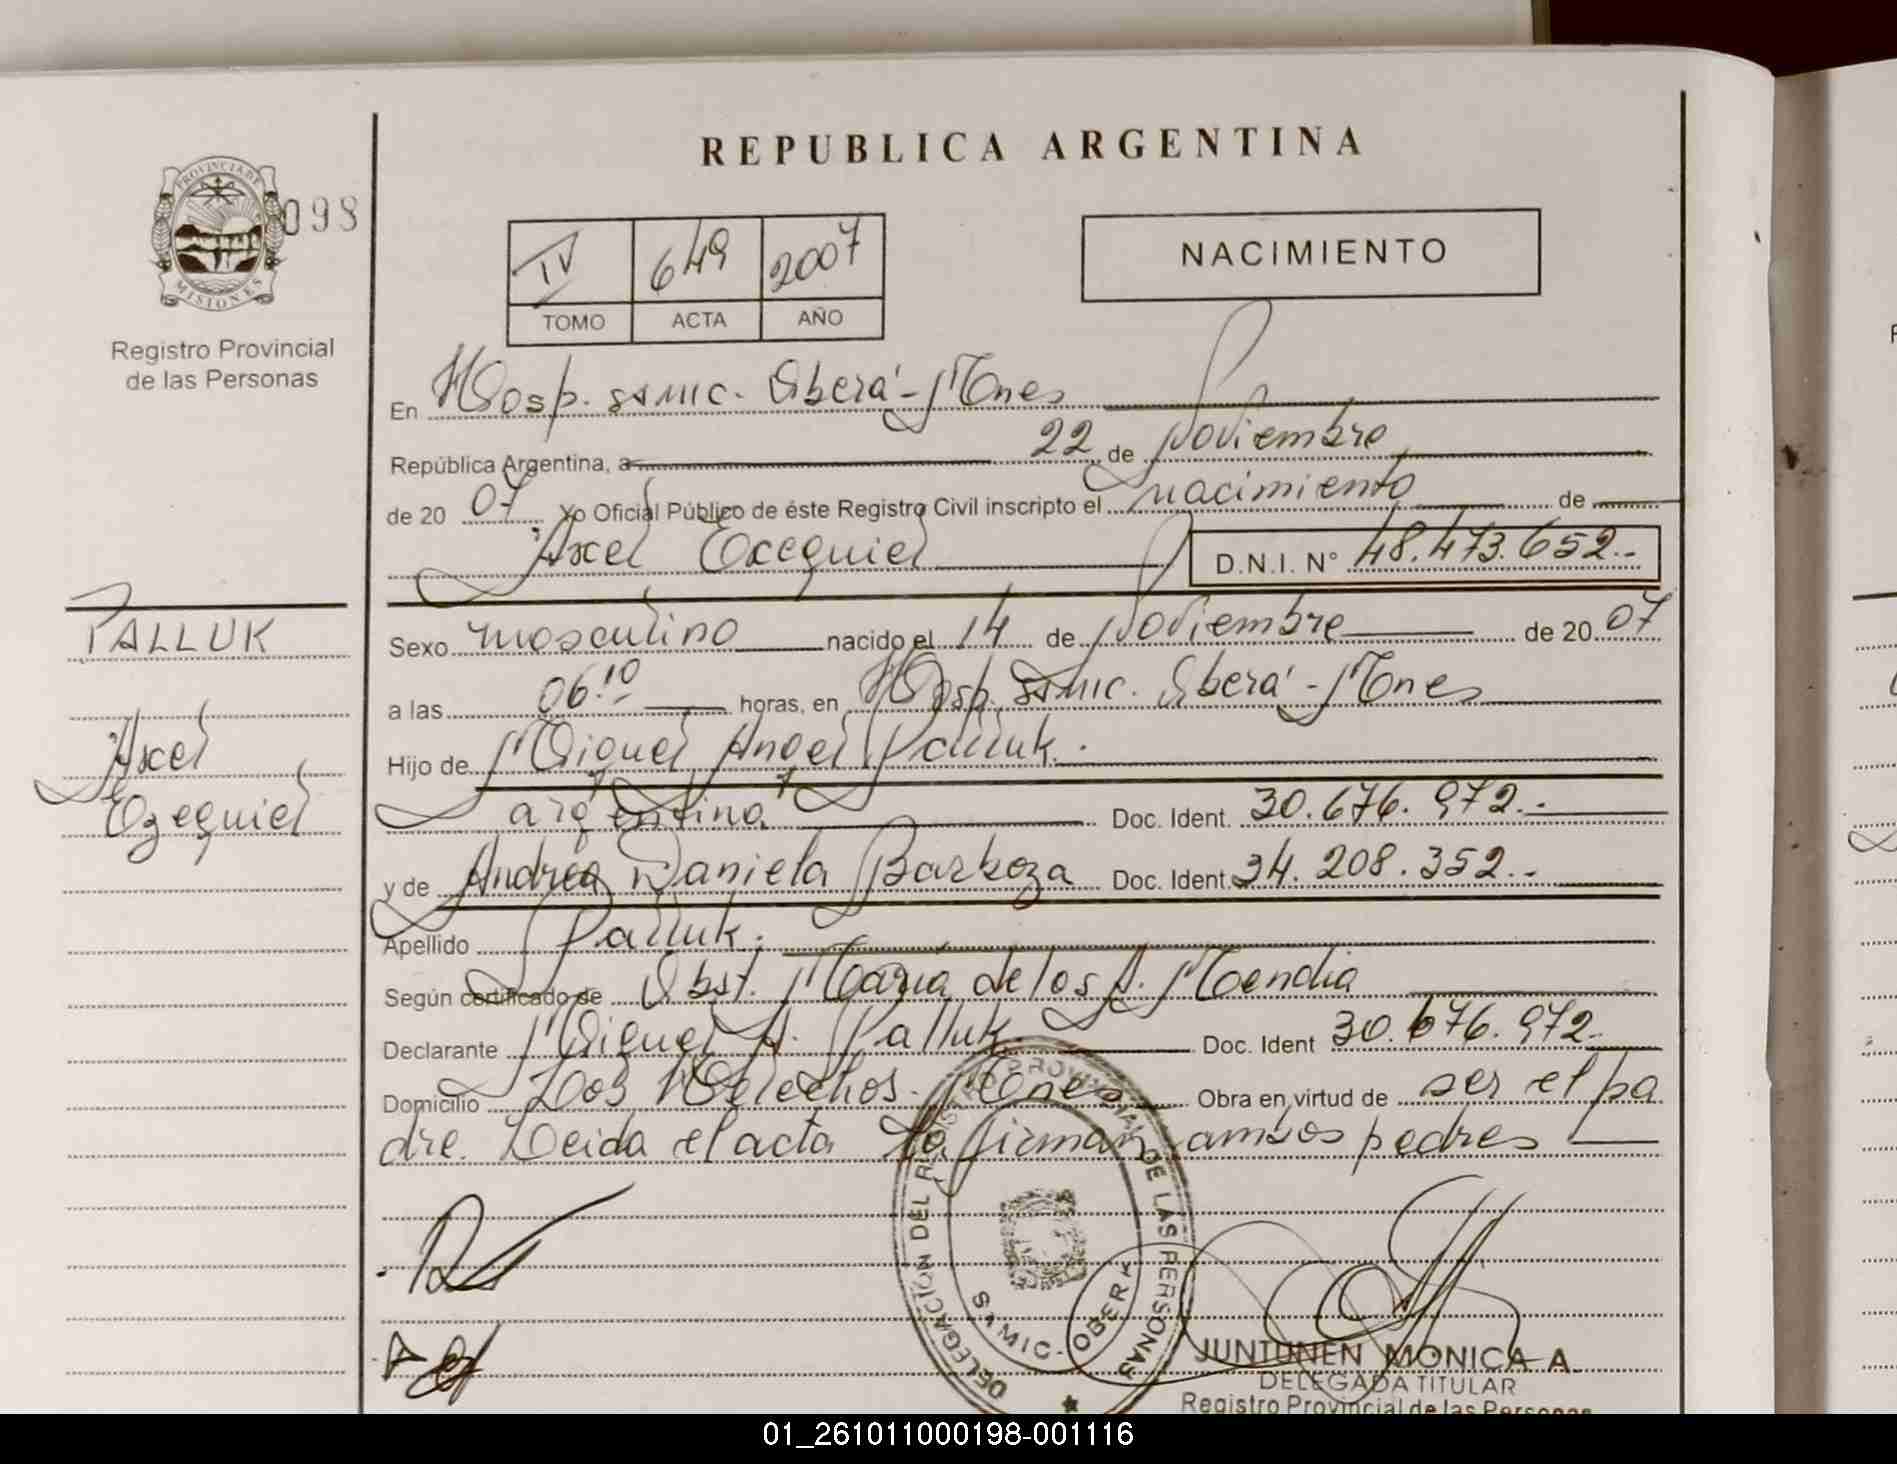 REPUBLICA ARGENTINA
PROVINCIA DE MISIONES
098
Registro Provincial
de las Personas
IV 649 2007
TOMO ACTA AÑO
NACIMIENTO
En Hosp. SAMIC. Oberá - Mnes
República Argentina, a 22 de Noviembre
de 20 07 Yo Oficial Público de éste Registro Civil inscripto el nacimiento de
Axel Exequiel D.N.I. N° 48.473.652.-
PALLUK
Axel
Ezequiel
Sexo masculino nacido el 14 de Noviembre de 20 07
a las 06:10 horas, en Hosp. SAMIC. Oberá - Mnes
Hijo de Miguel Angel Palluk.
argentina Doc. Ident. 30.676.972.-
y de Andrea Daniela Barboza Doc. Ident. 34.208.352.-
Apellido Palluk.
Según certificado de Obst. María de los A. Mendia
Declarante Miguel A. Palluk. Doc. Ident 30.676.972.
Domicilio Los Helechos. Mnes Obra en virtud de ser el pa
dre. Leida el acta la firman ambos padres
DELEGACIÓN DEL REGISTRO PROVINCIAL DE LAS PERSONAS
SAMIC - OBERÁ
JUNTUNEN MONICA A.
DELEGADA TITULAR
Registro Provincial de las Personas
01_261011000198-001116